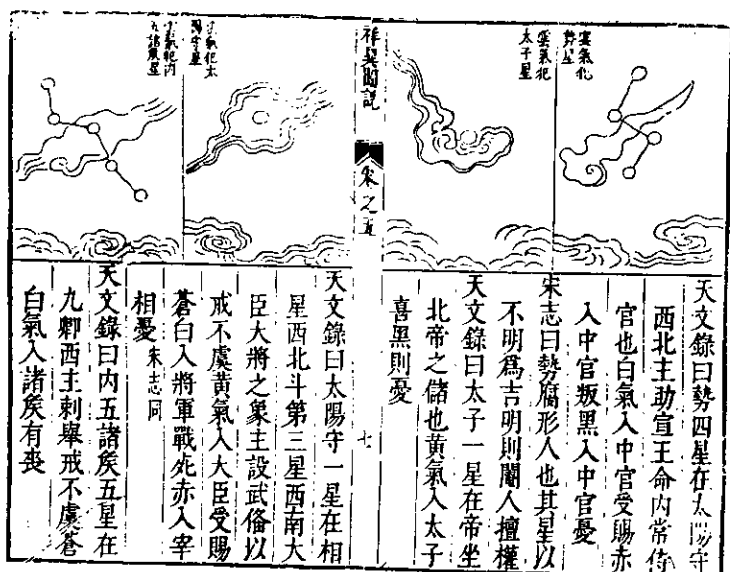 雲氣犯
勢星
雲氣犯
太子星
天文錄曰勢四星在太陽守
西北主助宣王命内常侍
官也白氣入中官受賜赤
入中官叛黑入中官憂
宋志曰勢腐形人也其星以
不明爲吉明則閹人擅權
天文錄曰太子一星在帝坐
北帝之儲也黄氣入太子
喜黑則憂
祥異圖説
卷之五
七
雲氣犯太
陽守星
雲氣犯内
五諸矦星
天文錄曰太陽守一星在相
星西北斗第三星西南大
臣大將之象主設武俻以
戒不虞黄氣入大臣受賜
蒼白入將軍戰死赤入宰
相憂 宋志同
天文錄曰内五諸矦五星在
九卿西主刺舉戒不虞蒼
白氣入諸矦有喪